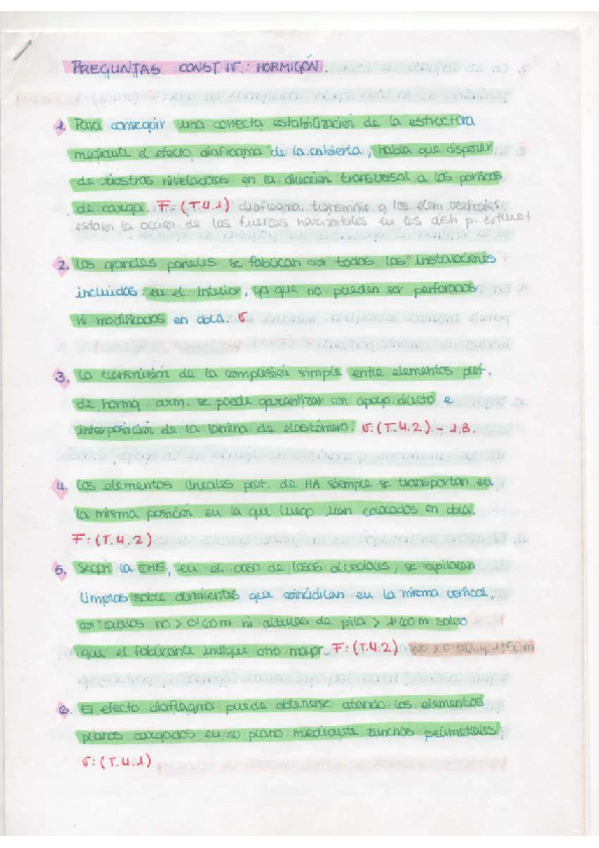 PREGUNTAS CONST. IV.: HORMIGÓN.
1. Para conseguir una correcta estabilización de la estructura
mediante el efecto diafragma de la cubierta, había que disponer
de riostras niveladoras en la dirección transversal a los pórticos
de carga. F: (T.4.1) diafragma transmitir a los elem verticales
estabil la accion de las fuerzas horizontales en los dist p. estruct
2. Los grandes paneles se fabrican con todas las instalaciones
incluidas en el interior, ya que no pueden ser perforados
ni modificados en obra. V
3. La transmisión de la compresión simple entre elementos pref.
de horma. arm. se puede garantizar con apoyo directo e
interposición de la lámina de elastómero. V. (T.4.2) - 1.3.
4. Los elementos lineales pref. de HA siempre se transportan en
la misma posición en la que luego iran colocados en obra.
F: (T.4.2)
5. Según la EHE, en el caso de losas alveolares, se apilarán
limpias sobre durmientes que coincidirán en la misma vertical,
con vuelos no > 0'60 m ni alturas de pila > 1'60 m salvo
que el fabricante indique otro mayor. F: (T.4.2)
6. El efecto diafragma puede obtenerse atando los elementos
planos cargados en su plano mediante zunchos perimetrales
V: (T.4.1)